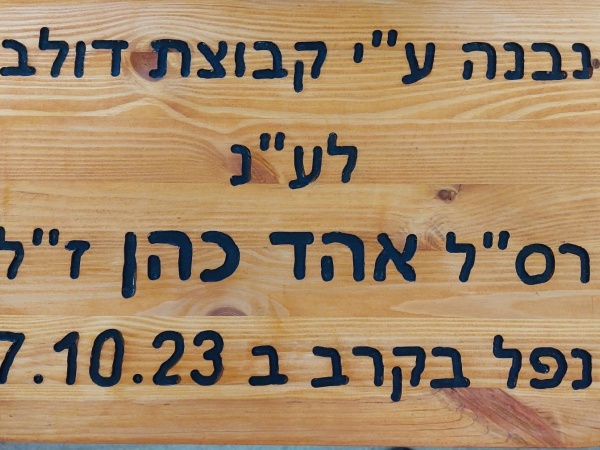 נבנה ע"י קבוצת דולב
לע"נ
רס"ל אהד כהן ז"ל
נפל בקרב ב 7.10.23